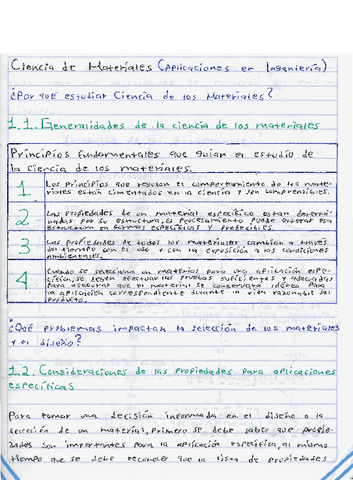 Ciencia de Materiales (Aplicaciones en Ingeniería)
¿Por qué estudiar Ciencia de los Materiales?
1.1. Generalidades de la ciencia de los materiales
Principios fundamentales que guían el estudio de
la ciencia de los materiales.
1 Los principios que regulan el comportamiento de los mate-
riales están cimentados en la ciencia y son comprensibles.
2 Las propiedades de un material específico están determi-
nadas por su estructura, el procesamiento puede alterar esa
estructura en formas específicas y predecibles.
3 Las propiedades de todos los materiales cambian a través
del tiempo con el uso y con la exposición a las condiciones
ambientales.
4 Cuando se selecciona un material para una aplicación espe-
cífica, se deben efectuar las pruebas suficientes y adecuadas
para asegurar que el material se conservará idóneo para
la aplicación correspondiente durante la vida razonable del
producto.
¿Qué problemas impactan la selección de los materiales
y el diseño?
1.2. Consideraciones de las propiedades para aplicaciones
específicas
Para tomar una decisión informada en el diseño a la
selección de un material, primero se debe saber que propie-
dades son importantes para la aplicación específica, al mismo
tiempo que se debe reconocer que la lista de propiedades